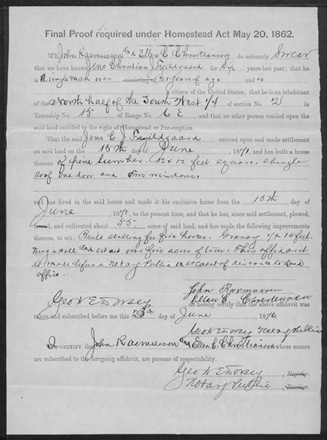 Final Proof required under Homestead Act May 20, 1862.
We John Rasmusson and Ellen C Christiansen do solemnly Swear
that we have known Jens Christian for Six years last past; that he
is a single man over 21 years of age and
citizen of the United States; that he is an inhabitant of the
North half of the South West 1/4 of section No. 2 in
Township No. 15 of Range No. 6 E, and that no other person resided upon the said
land entitled to the right of Homestead or Pre-emption.
That the said Jens C. entered upon and made settlement
on said land on the 10th day of June 1871, and has built a house
thereon of Pine Lumber, 12 x 14 feet square, shingle
roof one door and two windows
and has lived in the said house and made it his exclusive home from the 10th day of
June 1871, to the present time, and that he has, since said settlement, plowed,
fenced, and cultivated about 55 acres of said land, and has made the following improvements
thereon, to wit: Built stabling for five horses. Granary
dug a well and set out five acres of trees. This affidavit
is made before a Notary Public on account of distance to land
office.
John Rasmusson
Ellen C. Christensen
I, Geo W E Dorsey do hereby certify that the above affidavit was
subscribed before me this day of June 1876
Geo W E Dorsey Notary Public
I certify that John Rasmusson and Ellen C Christiansen whose names
are subscribed to the foregoing affidavit, are persons of respectability.
Geo W E Dorsey
Notary Public